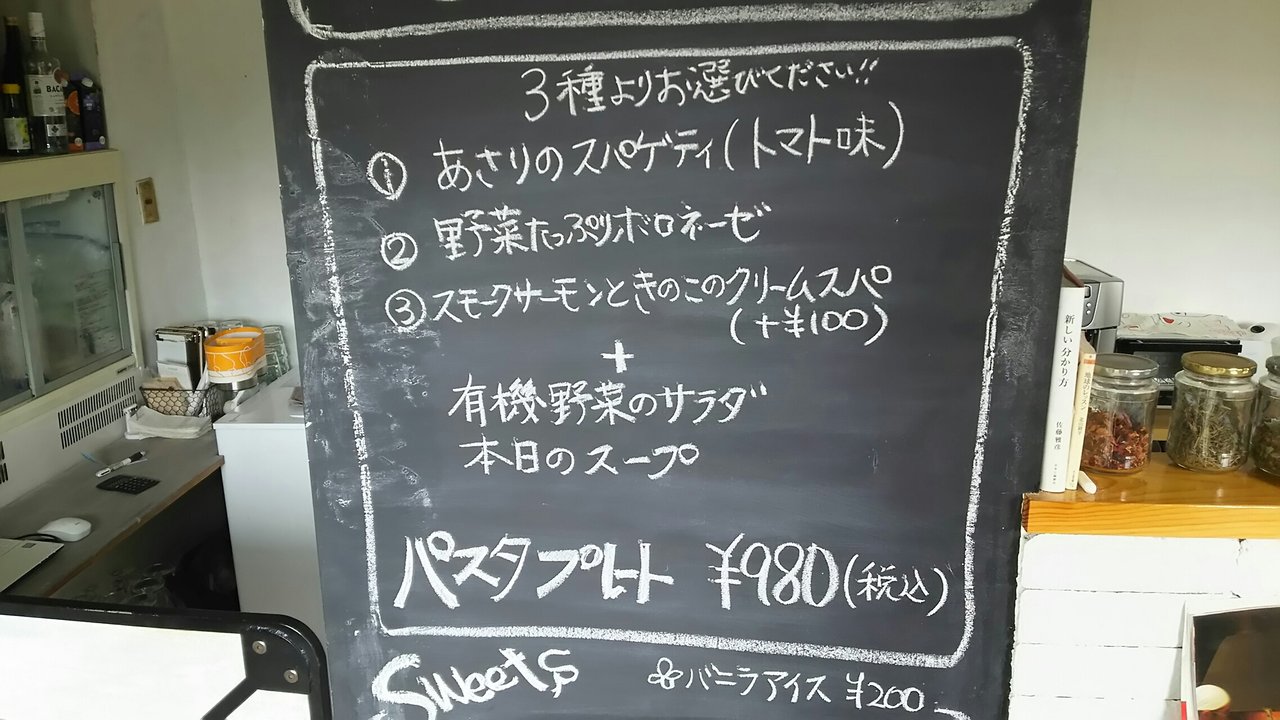 3種よりお選びください!!
① あさりのスパゲティ(トマト味)
② 野菜たっぷりボロネーゼ
③ スモークサーモンときのこのクリームスパ
(+¥100)
+
有機野菜のサラダ
本日のスープ
パスタプレート ¥980(税込)
Sweets
バニラアイス ¥200
新しい分かり方
佐藤雅彦